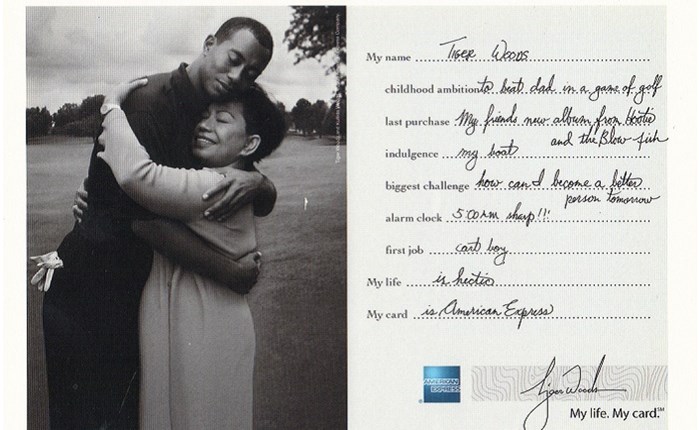 My name Tiger Woods
childhood ambition to beat dad in a game of golf
last purchase My friends new album from Hootie
and the Blow fish
indulgence my boat
biggest challenge how can I become a better
person tomorrow
alarm clock 5:00 AM sharp!!!
first job cart boy
My life is hectic
My card is American Express
AMERICAN
EXPRESS
Tiger Woods
My life. My card.℠